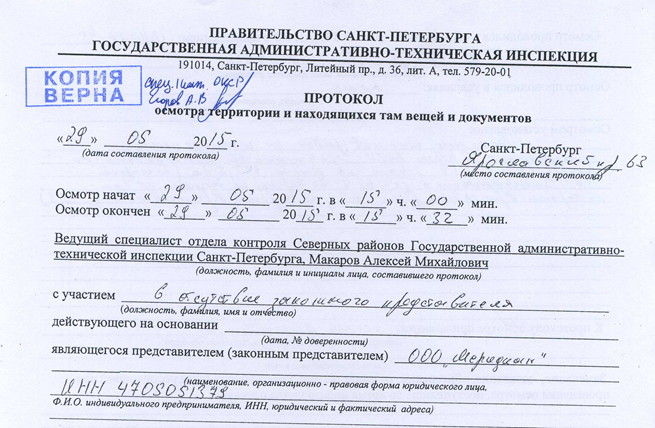 ПРАВИТЕЛЬСТВО САНКТ-ПЕТЕРБУРГА
ГОСУДАРСТВЕННАЯ АДМИНИСТРАТИВНО-ТЕХНИЧЕСКАЯ ИНСПЕКЦИЯ
191014, Санкт-Петербург, Литейный пр., д. 36, лит. А, тел. 579-20-01
КОПИЯ
ВЕРНА
ПРОТОКОЛ
осмотра территории и находящихся там вещей и документов
«29» 05 2015 г.
Санкт-Петербург
(дата составления протокола)
Ярославский пр. 63
(место составления протокола)
Осмотр начат «29» 05 2015 г. в «15» ч. «00» мин.
Осмотр окончен «29» 05 2015 г. в «15» ч. «32» мин.
Ведущий специалист отдела контроля Северных районов Государственной административно-
технической инспекции Санкт-Петербурга, Макаров Алексей Михайлович
(должность, фамилия и инициалы лица, составившего протокол)
с участием в отсутствие законного представителя
(должность, фамилия, имя и отчество)
действующего на основании
(дата, № доверенности)
являющегося представителем (законным представителем) ООО „Меридиан"
(наименование, организационно - правовая форма юридического лица,
ИНН 4705051379
Ф.И.О. индивидуального предпринимателя, ИНН, юридический и фактический адреса)